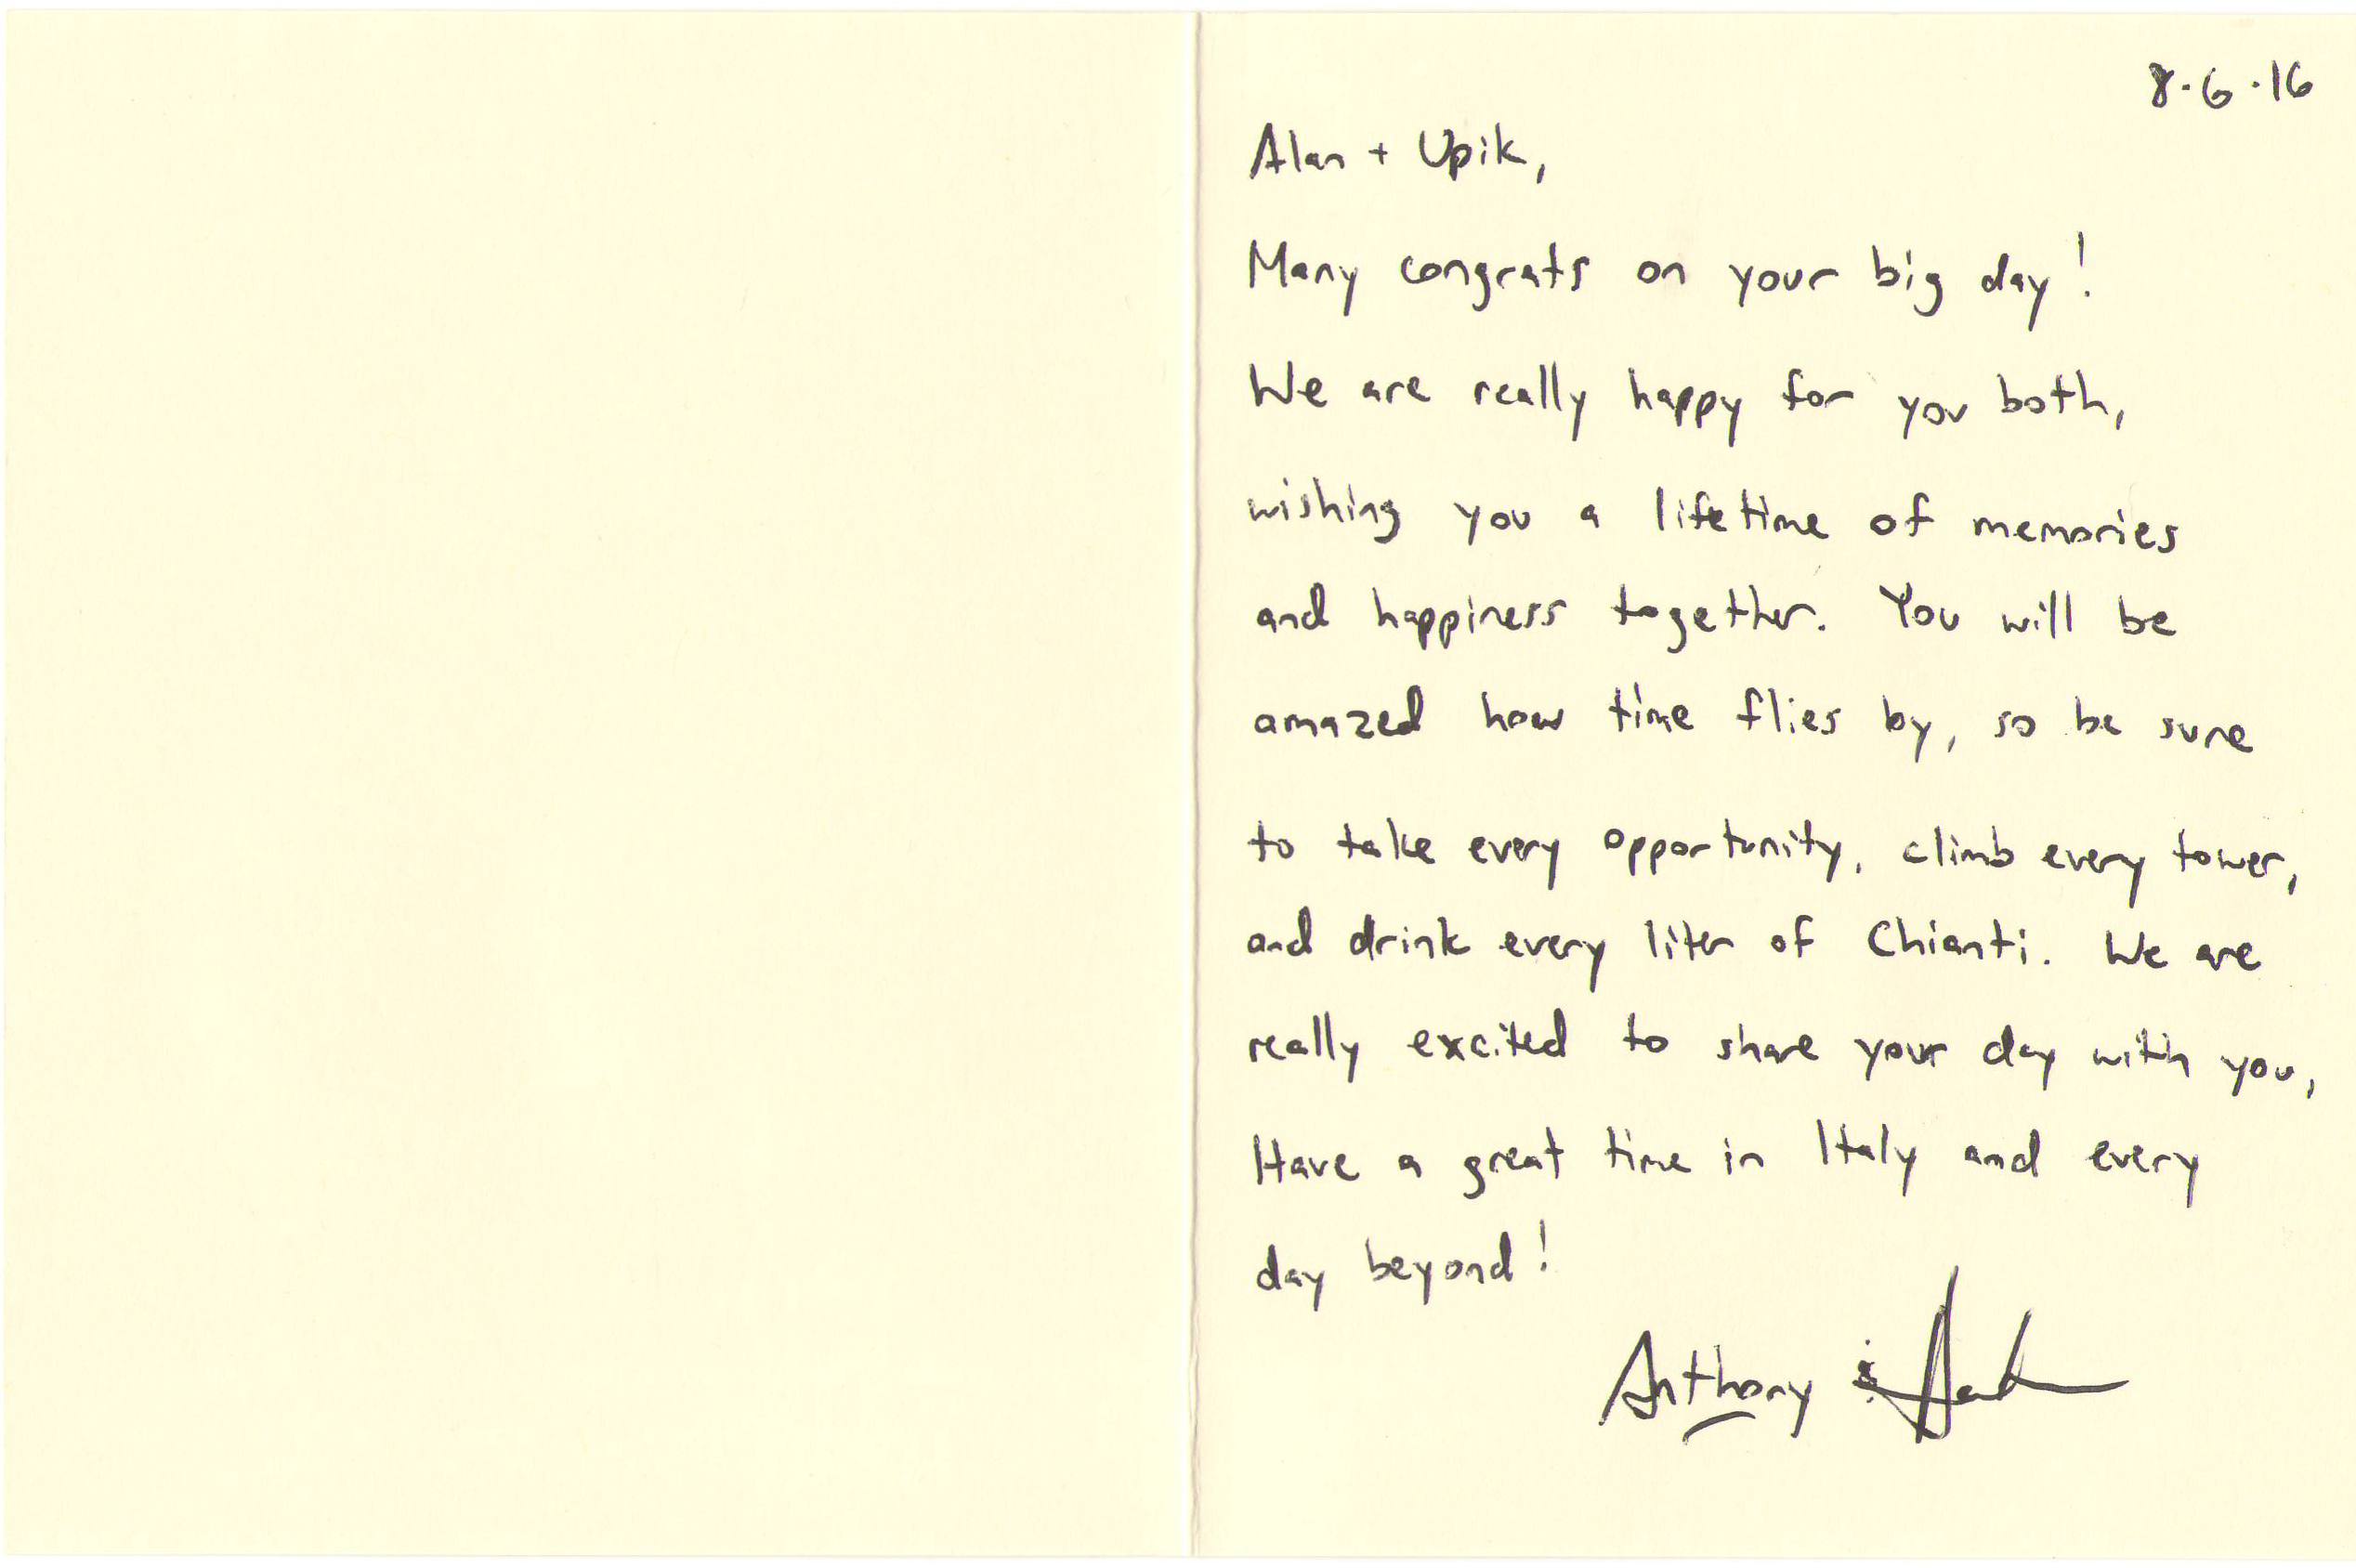 8.6.16
Alan + Upik,
Many congrats on your big day!
We are really happy for you both,
wishing you a lifetime of memories
and happiness together. You will be
amazed how time flies by, so be sure
to take every opportunity, climb every tower,
and drink every liter of Chianti. We are
really excited to share your day with you,
Have a great time in Italy and every
day beyond!
Anthony &